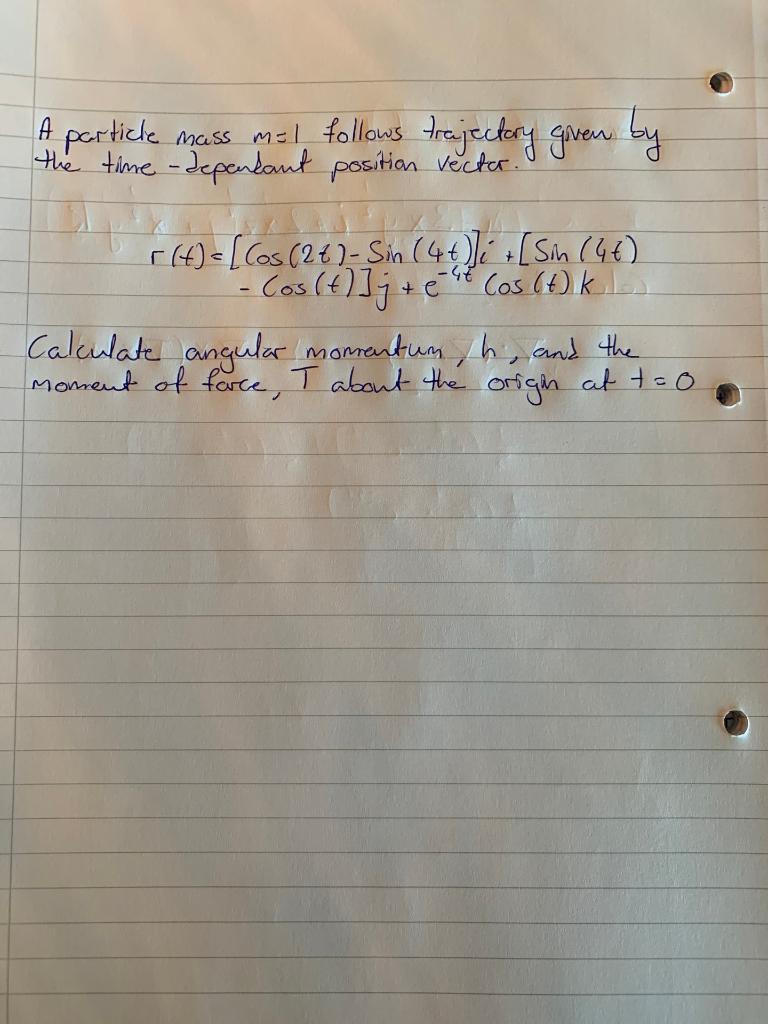 A particle mass m=1 follows trajectory given by
the time-dependant position vector.
r(t)=[Cos(2t)-Sin(4t)]i+[Sin(4t)
-Cos(t)]j+e^-4t Cos(t)k
Calculate angular momentum, h, and the
moment of force, T about the origin at t=0